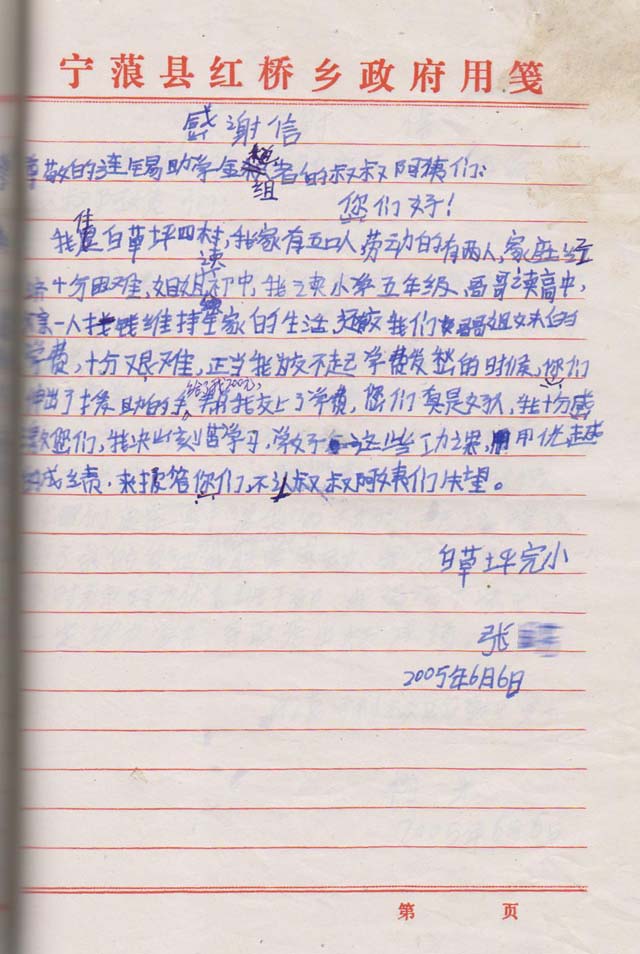 宁蒗县红桥乡政府用笺
感谢信
尊敬的连锡助学金组者的叔叔阿姨们:
您们好!
我住白草坪四村,我家有五口人,劳动的有两人,家庭经
济十分困难,姐姐读初中,我读小学五年级,哥哥读高中,
一人找钱维持全家的生活,还交我们哥哥姐妹的
学费,十分艰难,正当我交不起学费发愁的时候,您们
伸出了援助的手,给了我200元,帮我交上了学费,您们真是好人,我十分感
您们,我决心刻苦学习,学好这些功课,用优越
的成绩,来报答你们,不让叔叔阿姨们失望。
白草坪完小
张
2005年6月6日
第 页